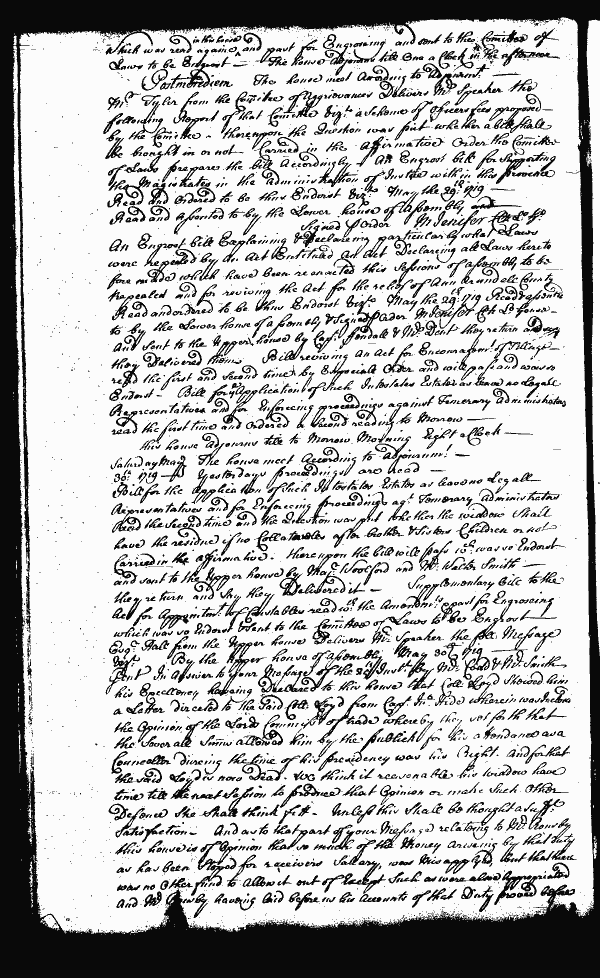 in this house
which was read again and past for Engrossing and sent to the Comittee of
Laws to be Engrost — The house adjourns till One a Clock in the afternoon
Postmeridiem The house meet According to Adjournt —
Mr Tyler from the Comittee of Aggrievances Delivers Mr Speaker the
following Report of that Comittee Vizt a Scheme of officers fees proposed
by the Comittee - thereupon the Question was put whether a bill shall
be brought in or not Carried in the Affirmative Order the Comittee
of Laws prepare the bill Accordingly - An Engrost bill for Supporting
the Magistrates in the Administration of Justice within this province
Read and Ordered to be thus Endorst Vizt May the 29th 1719 —
Read and assented to by the Lower house of assembly and
Signed p Order M Jenifer Cl Lo. Ho.
An Engrost bill Explaining & Declaring particularly what Laws
were repealed by an Act Entituled An Act Declaring all Laws hereto
fore made which have been reenacted this Sessions of assembly to be
repealed and for reviving the Act for the relief of Ann Arundell County
Read and ordered to be thus Endorst Vizt May the 29th 1719 Read & assented
to by the Lower house of assembly & Signed p Order M Jenifer Cl Lo house
And sent to the Upper house by Capt Kendall & Mr Dent they return and say
they Delivered them Bill reviving an Act for Encouragemt of Tillage
read the first and second time by Especiale Order and will pass and was so
Endorst - Bill for ye Application of Such Intestates Estates as leave no Legall
Representatives and for Enforcing proceedings against Temerary Administrators
read the first time and Ordered a second reading to Morrow —
this house Adjourns till to Morrow Morning Eight a Clock —
Saturday May The house meet According to Adjournmt —
30th 1719 — Yesterdays proceedings are read —
Bill for the Application of Such Intestates Estates as leave no Legall
Representatives and for Enforcing proceedings agt Temerary Administrators
Read the Second time and the Question was put whether the widdow Shall
have the residue if no Collateralls after brother & Sisters Children or not
Carried in the affirmative - thereupon the bill will pass wch was so Endorst
and sent to the Upper house by Majr Woolford and Mr Walter Smith —
they return and say they Delivered it — Supplementary bill to the
Act for Appointmt of Constables read wth the Amendmts & past for Engrossing
which was so Endorst & sent to the Comittee of Laws to be Engrost —
Esqr Hall from the Upper house Delivers Mr Speaker the foll. Message
Vizt By the Upper house of assembly May 30th 1719 —
Gent In Answer to your Message of the Inst by Mr Read & Mr Smith
his Excellency having Declared to this house that Coll Loyd Shewed him
a Letter directed to the said Coll Loyd from Capt Jno Hide wherein was Inclosed
the Opinion of the Lords Commissrs of trade whereby they set forth that
the Severall Sums allowed him by the publick for his attendance as a
Councellor dureing the time of his presidency was his Right. And for that
the said Loyd is now Dead. We think it reasonable his widdow have
time till the next Session to produce that Opinion or make Such Other
Defence She Shall think fitt - Unless this Shall be thought a Sufft
Satisfaction - And as to that part of your Message relateing to Mr Rousby
this house is of Opinion that so much of the Money ariseing by that duty
as has been Stoped for receivers Sallary, was Misapplyed but that there
was no Other fund to Allow it out of Except Such as were alsoe Appropriated
And Mr Rousby haveing laid before us his Accounts of that Duty proved before